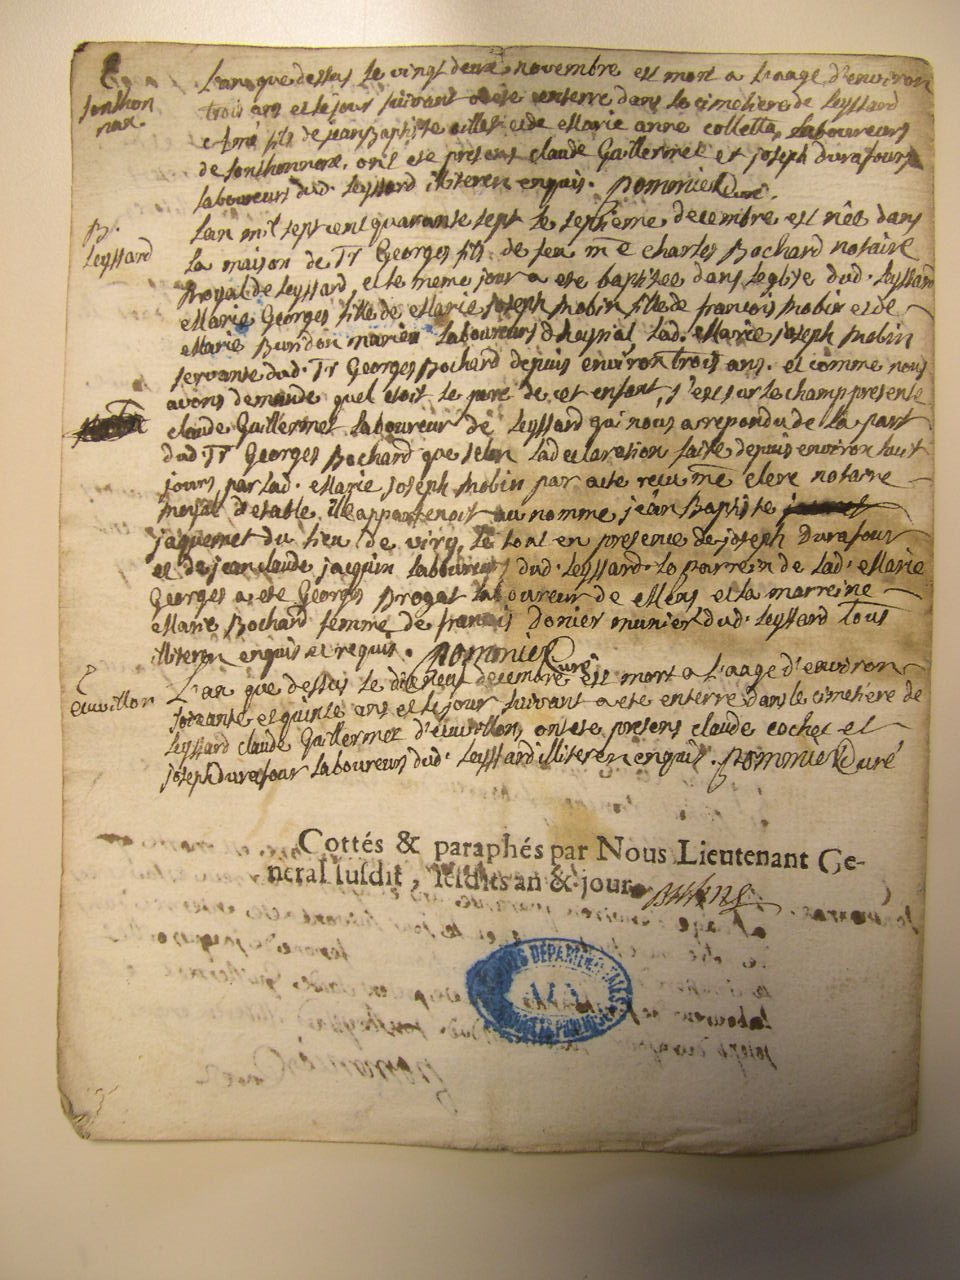 Sonthon
nax.
L'an que dessus le vingt deux novembre est mort a L'aage d'environ
trois ans et le jour suivant a ete enterré dans le cimetiere de Leyssard
fils de jean Baptiste et de Marie anne colletta, Laboureurs
de Sonthonnax, ont ete présens claude Guillermet et joseph Durafour
Laboureurs dud. Leyssard illiterés enquis. Pommier Curé.
B.
Leyssard
L'an mil sept cent quarante sept le septieme decembre est née dans
La maison de Sr Georges fils de feu me charles Bochard notaire
Royal de Leyssard, et le meme jour a ete baptisée dans l'eglise dud. Leyssard
Marie Georges fille de Marie joseph Robin fille de françois Robin et de
Marie Burdon mariés Laboureurs d' Lad. Marie joseph Robin
servante dud. Sr Georges Bochard depuis environ trois ans. et comme nous
avons demande quel etoit le pere de cet enfant, s'est sur le champ presente
claude Guillermet Laboureur de Leyssard qui nous a repondu de La part
dud Sr Georges Bochard que selon Lad declaration faite depuis environ huit
jours par Lad. Marie joseph Robin par acte recu me notaire
royal d'etable il appartenoit au nomme jean Baptiste
jaquemet du lieu de viry, Le tout en presence de joseph Durafour
et de jean claude jacquin Laboureurs dud. Leyssard. Le parrein de Lad. Marie
Georges a ete Georges Brogat Laboureur de et la marreine
Marie Bochard femme de françois Donier munier dud. Leyssard Tous
illiterés enquis et requis. Pommier Curé
L'an que dessus le dix neuf decembre est mort a L'aage d'environ
soixante et quinze ans et le jour suivant a ete enterré dans le cimetiere de
Leyssard claude Guillermet ont ete presens claude cochet et
joseph durafour Laboureurs dud. Leyssard illiterés enquis. Pommier Curé
Cottés & paraphés par Nous Lieutenant Ge-
neral susdit, lesdits an & jour.
DEPARTEMENTALES